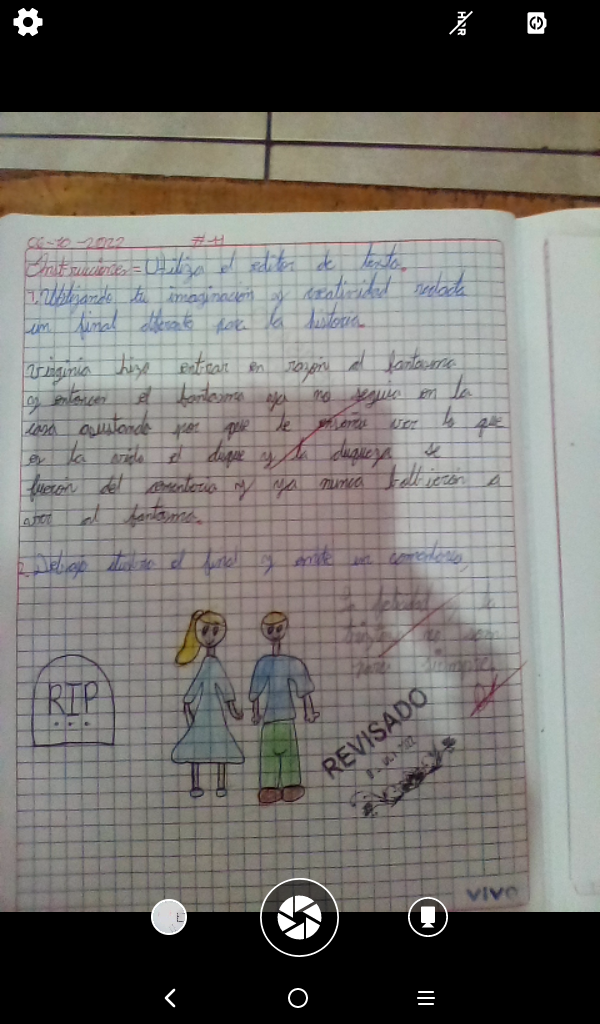 06-10-2022 #11
Instrucciones= Utiliza el editor de texto.
1. Utilizando tu imaginación y creatividad redacta
un final diferente para la historia.
Virginia hizo entrar en razón al fantasma
y entonces el fantasma ya no seguia en la
casa asustando por que le enseño ver lo que
es la vida el duque y la duqueza se
fueron del cementerio y ya nunca bolbieron a
ver al fantasma.
2. Debajo el final y un
la y la
no son
para siempre
RIP
REVISADO
VIVO